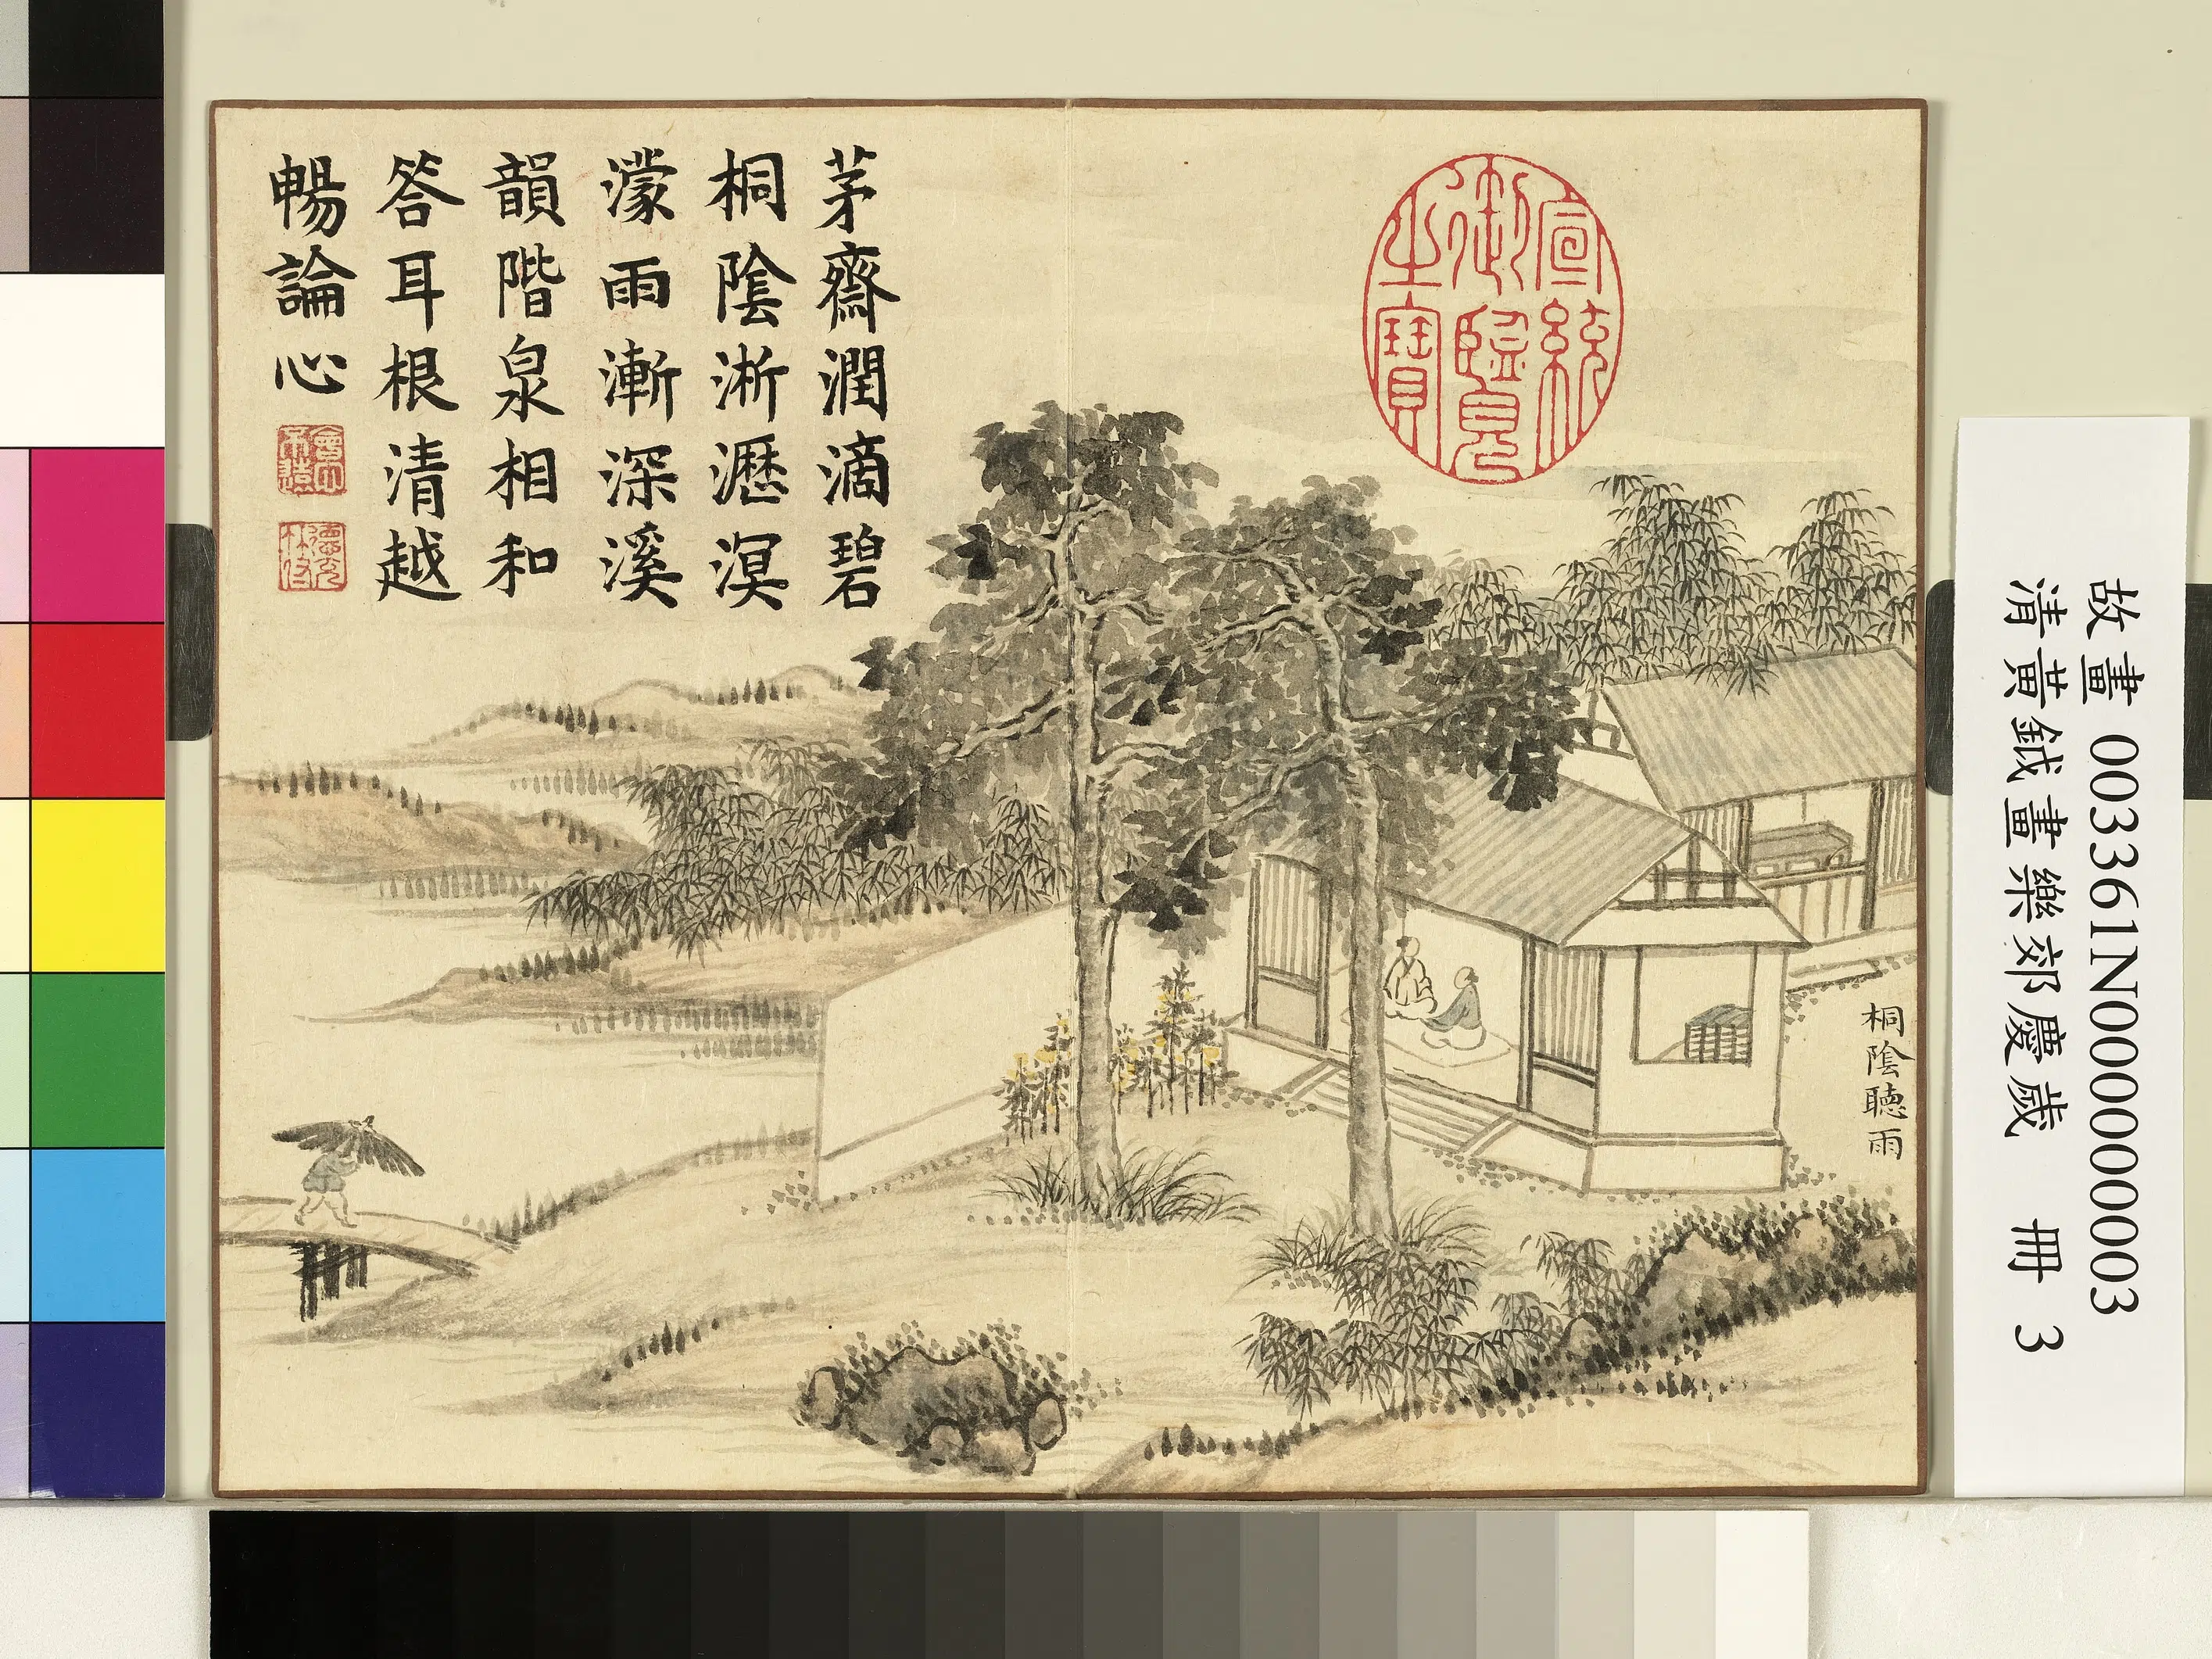 茅齋潤滴碧
桐陰淅瀝溟
濛雨漸深溪
韻階泉相和
答耳根清越
暢論心
宣統
御覽
之寶
桐陰聽雨
故畫 003361N000000003
清黃鉞畫樂郊慶歲 冊 3